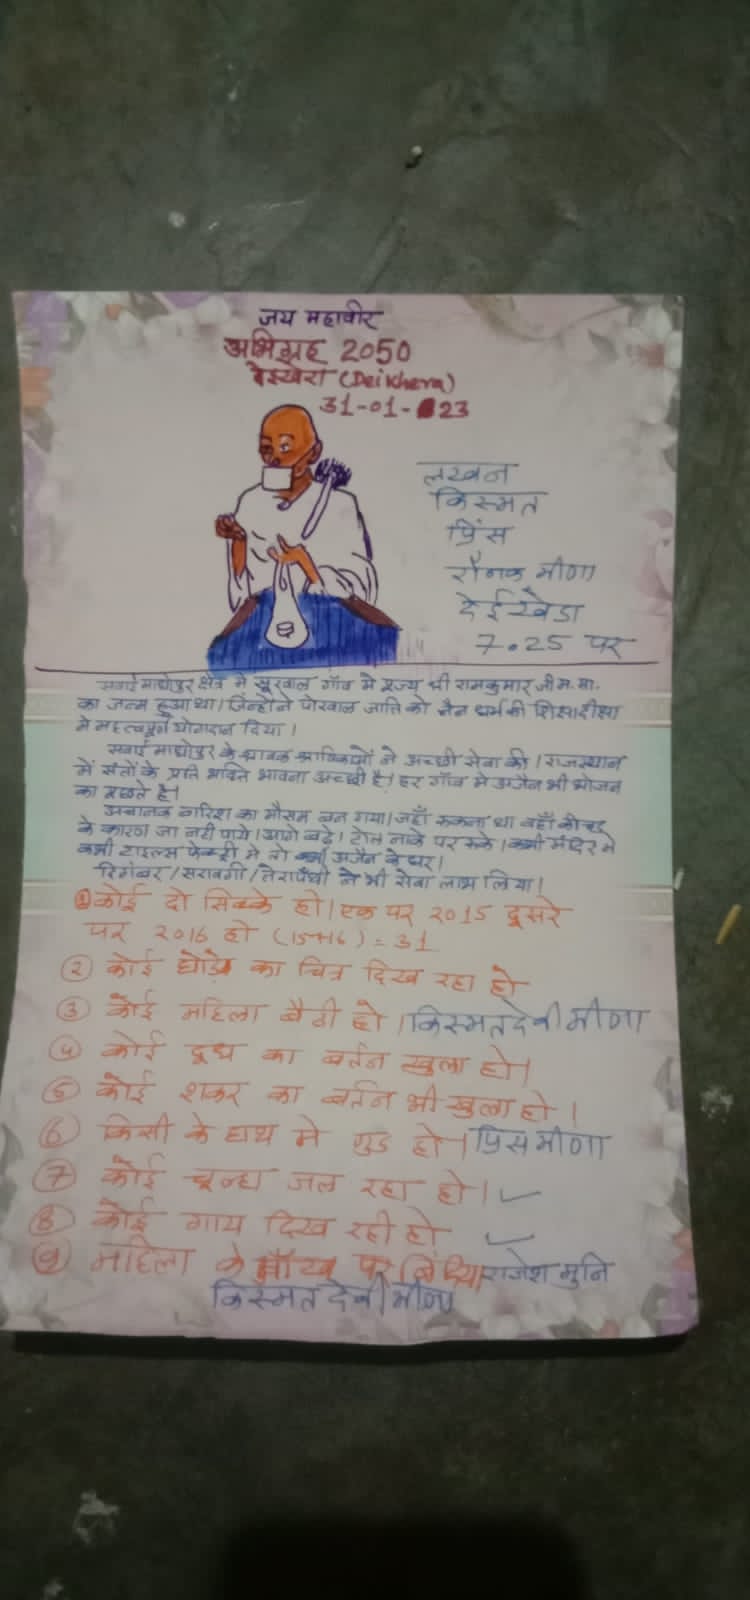 जय महावीर
अभिग्रह 2050
देईखेरा (Deikhera)
31-01-23
लखन
किस्मत
प्रिंस
रौनक मीणा
देईखेडा
7.25 पर
सवाई माधोपुर क्षेत्र मे सूरवाल गाँव मे पूज्य श्री रामकुमार जी म.सा.
का जन्म हुआ था। जिन्होने पोरवाल जाति को जैन धर्म की शिक्षा दीक्षा
मे महत्वपूर्ण योगदान दिया।
सवाई माधोपुर के श्रावक श्राविकाओं ने अच्छी सेवा की। राजस्थान
में संतों के प्रति भक्ति भावना अच्छी है। हर गाँव मे अजैन भी भोजन
का पूछते है।
अचानक बारिश का मौसम बन गया। जहाँ रुकना था वहाँ कीचड़
के कारण जा नही पाये। आगे बढ़े। टोल नाके पर रुके। कभी मंदिर मे
कभी टाइल्स फेक्ट्री मे तो कभी अजैन के घर।
दिगंबर/सरावगी/तेरापंथी ने भी सेवा लाभ लिया।
① कोई दो सिक्के हो। एक पर 2015 दूसरे
पर 2016 हो (15+16) = 31
② कोई घोड़े का चित्र दिख रहा हो
③ कोई महिला बैठी हो। किस्मत देवी मीणा
④ कोई दूध का बर्तन खुला हो।
⑤ कोई शकर का बर्तन भी खुला हो।
⑥ किसी के हाथ मे गुड हो। प्रिंस मीणा
⑦ कोई चूल्हा जल रहा हो। ✓
⑧ कोई गाय दिख रही हो ✓
⑨ महिला के पर बिंदिया राजेश मुनि
किस्मत देवी मीणा